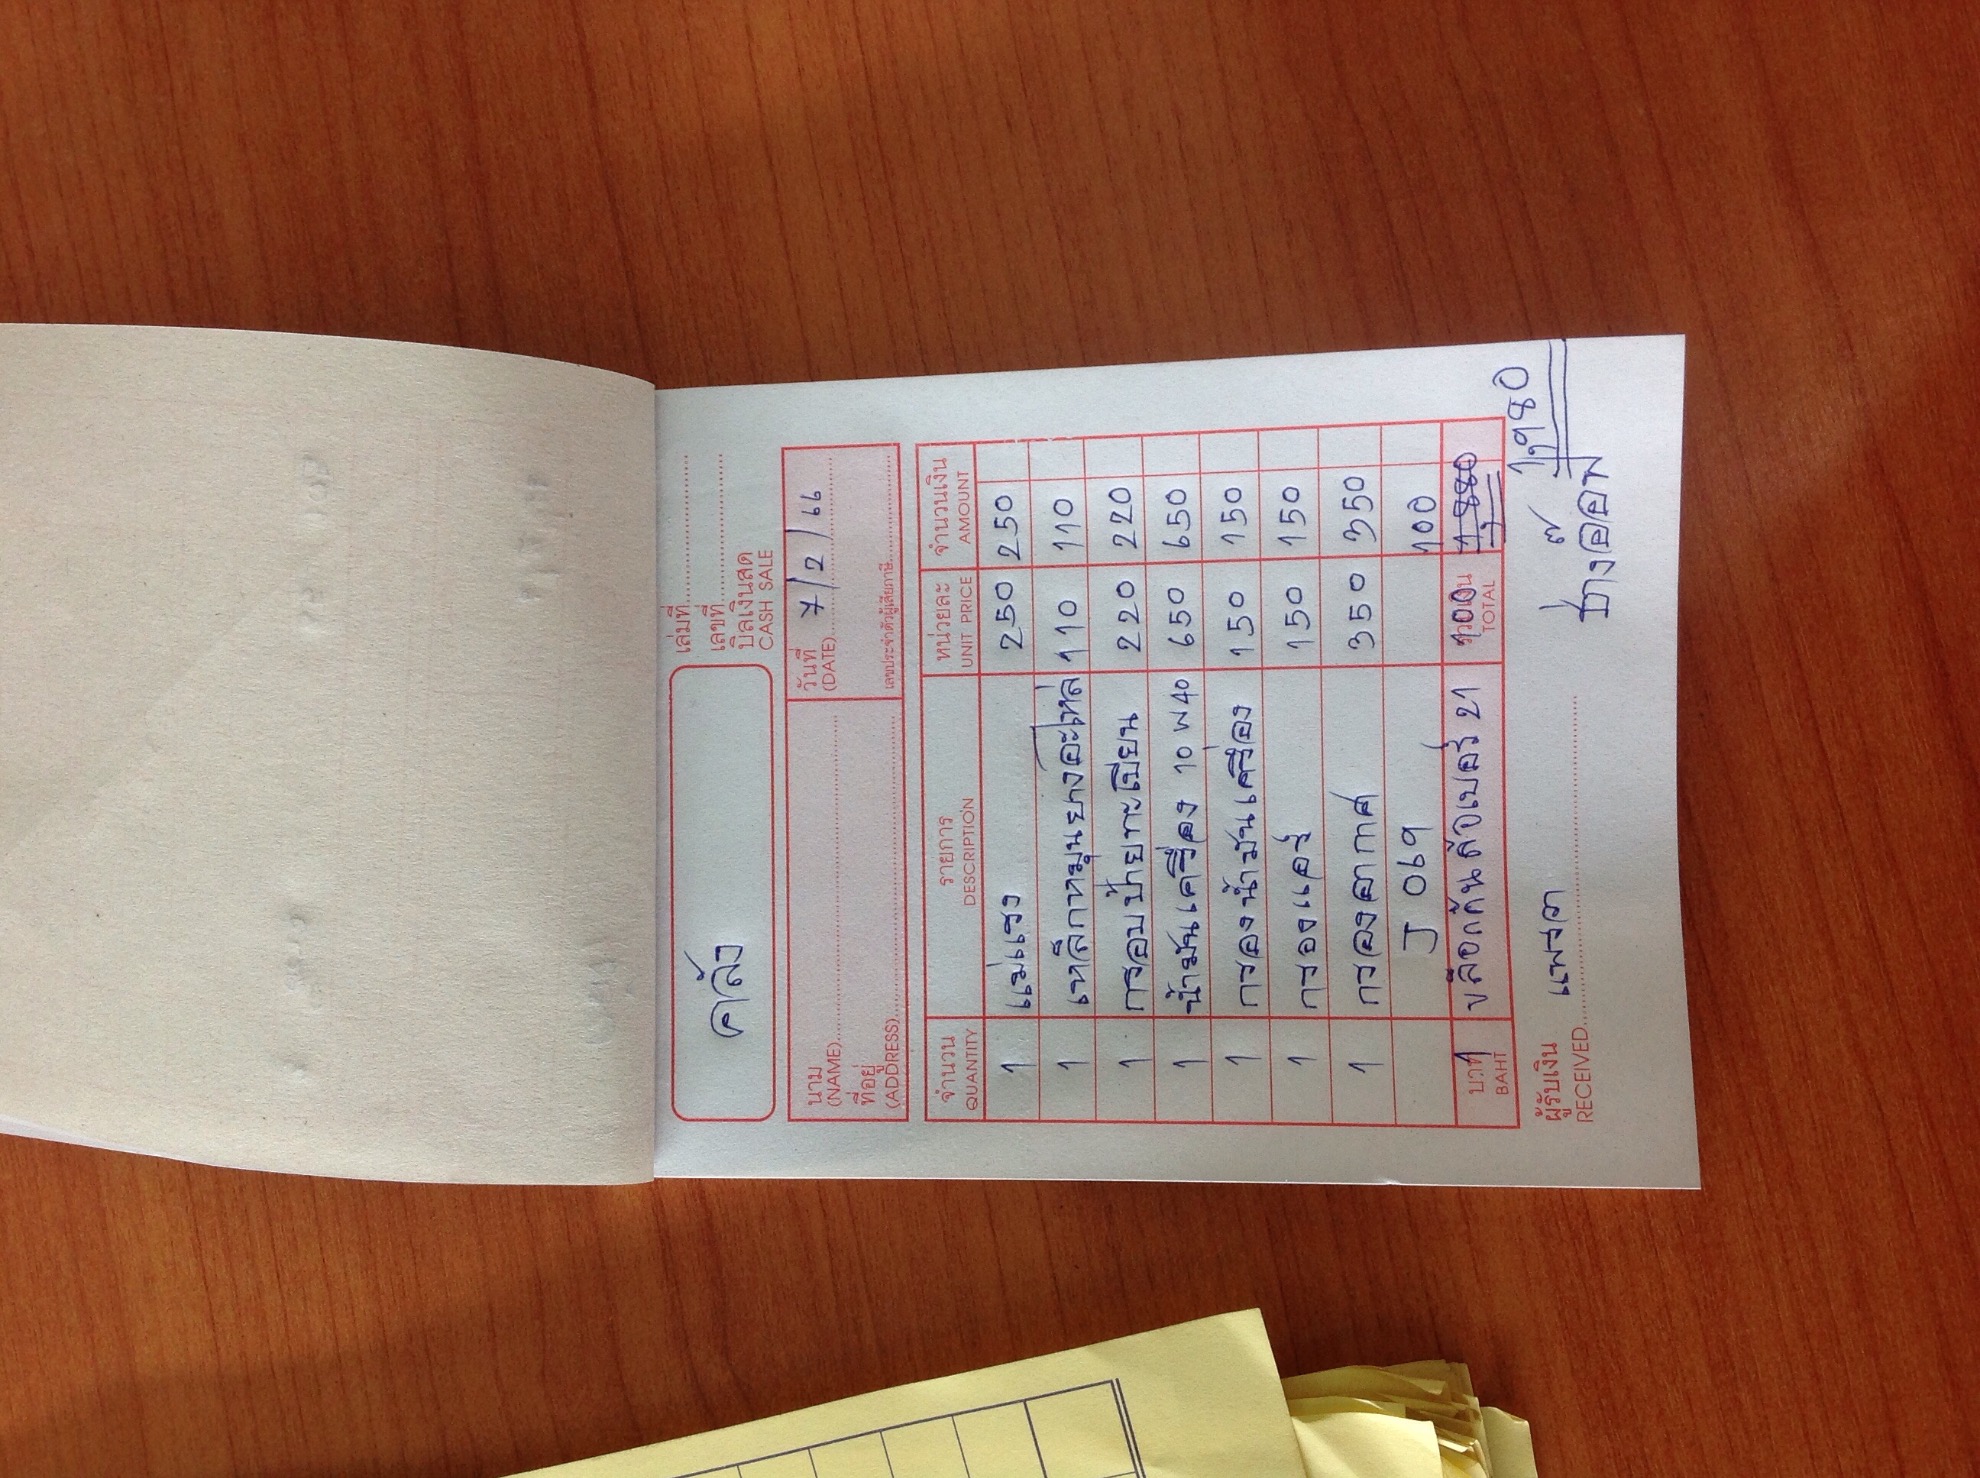 เล่มที่
เลขที่
คลัง บิลเงินสด
CASH SALE
นาม
(NAME)
วันที่
(DATE) 7/2/66
ที่อยู่
(ADDRESS)
เลขประจำตัวผู้เสียภาษี
จำนวน รายการ หน่วยละ จำนวนเงิน
QUANTITY DESCRIPTION UNIT PRICE AMOUNT
1 แม่แรง 250 250
1 เหล็กหมุนยางอะไหล่ 110 110
1 กรอบป้ายทะเบียน 220 220
1 น้ำมันเครื่อง 10W40 650 650
1 กรองน้ำมันเครื่อง 150 150
1 กรองแอร์ 150 150
1 กรองอากาศ 350 350
J 069 100
บาท 1 บล็อกถันล้อเบอร์ 21 รวมเงิน 100 1,880
BAHT TOTAL
1,980
ผู้รับเงิน แพรวา
RECEIVED
ช่างออฟ